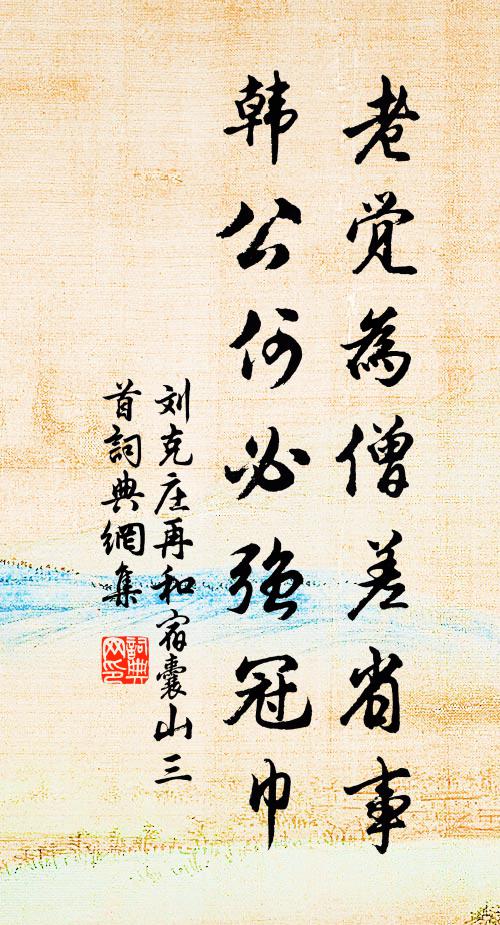 老覺為僧差省事
韓公何必強冠巾
刘克庄再和宿囊山三
首詞典網集
詞典
网印